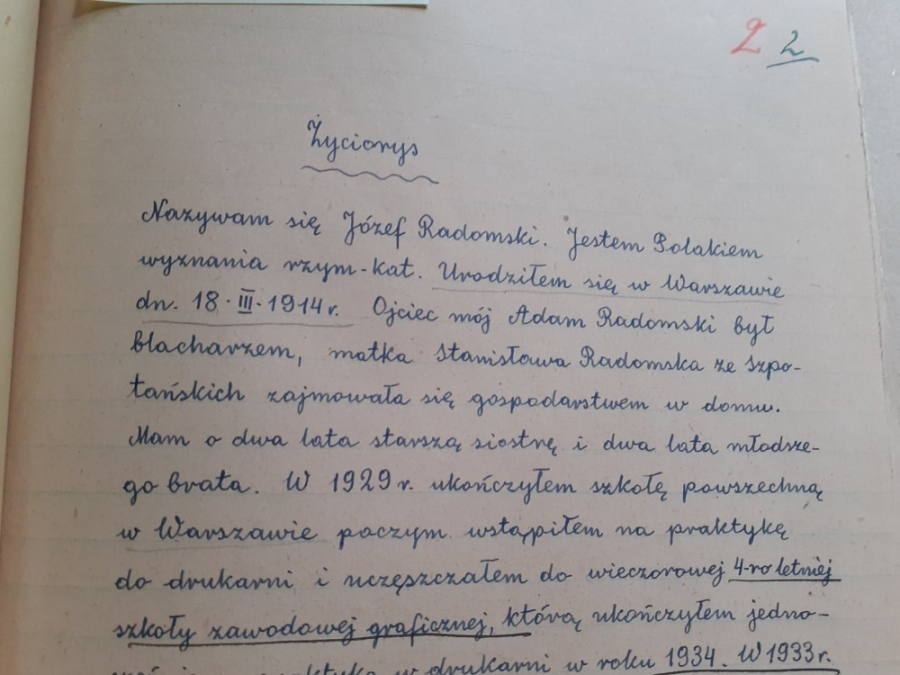 2 2
Życiorys
Nazywam się Józef Radomski. Jestem Polakiem
wyznania rzym-kat. Urodziłem się w Warszawie
dn. 18·III·1914 r. Ojciec mój Adam Radomski był
blacharzem, matka Stanisława Radomska ze Szpo-
tańskich zajmowała się gospodarstwem w domu.
Mam o dwa lata starszą siostrę i dwa lata młodsze-
go brata. W 1929 r. ukończyłem szkołę powszechną
w Warszawie poczym wstąpiłem na praktykę
do drukarni i uczęszczałem do wieczorowej 4-ro letniej
szkoły zawodowej graficznej, którą ukończyłem jedno-
w drukarni w roku 1934. W 1933 r.